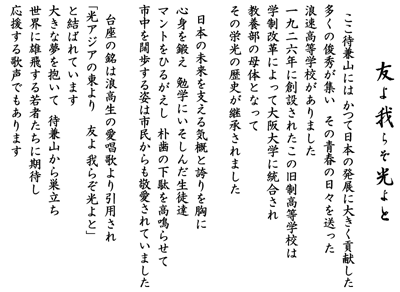 友よ我らぞ光よと
ここ待兼山には かつて日本の発展に大きく貢献した
多くの俊秀が集い その青春の日々を送った
浪速高等学校がありました
一九二六年に創設されたこの旧制高等学校は
学制改革によって大阪大学に統合され
教養部の母体となって
その栄光の歴史が継承されました
日本の未来を支える気概と誇りを胸に
心身を鍛え 勉学にいそしんだ生徒達
マントをひるがえし 朴歯の下駄を高鳴らせて
市中を闊歩する姿は市民からも敬愛されていました
台座の銘は浪高生の愛唱歌より引用され
「光アジアの東より 友よ 我らぞ光よと」
と結ばれています
大きな夢を抱いて 待兼山から巣立ち
世界に雄飛する若者たちに期待し
応援する歌声でもあります